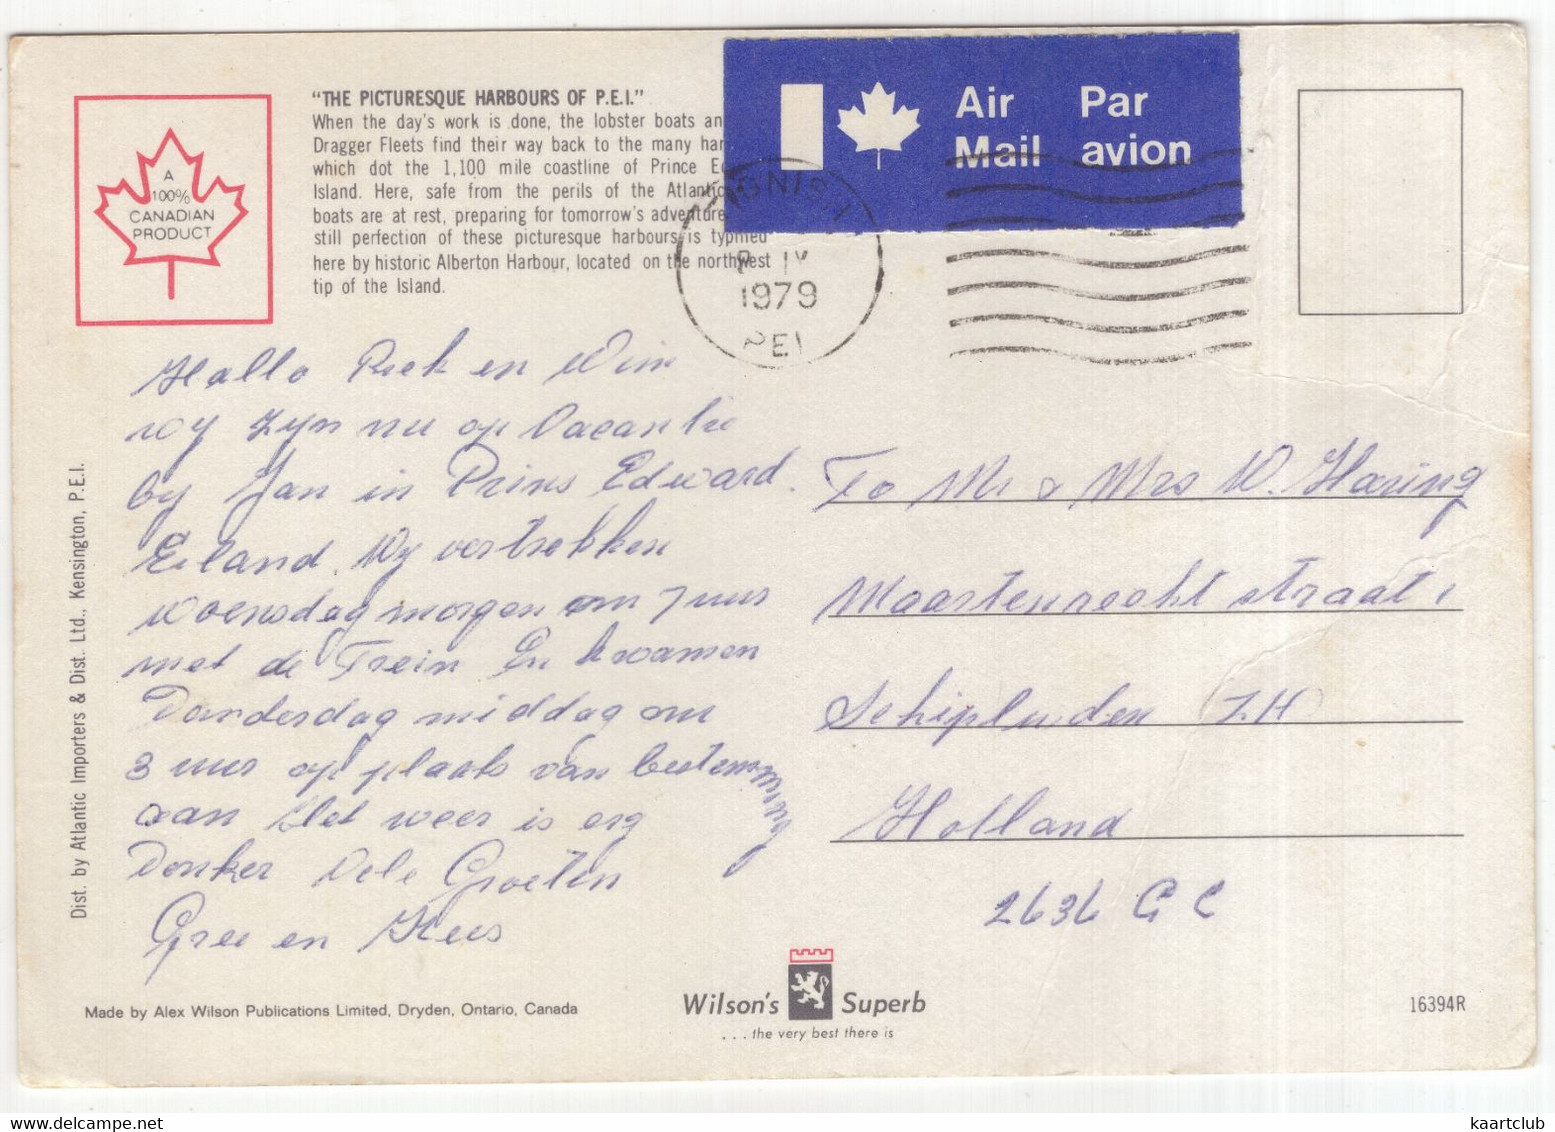 A
100%
CANADIAN
PRODUCT
"THE PICTURESQUE HARBOURS OF P.E.I."
When the day's work is done, the lobster boats an
Dragger Fleets find their way back to the many har
which dot the 1,100 mile coastline of Prince E
Island. Here, safe from the perils of the Atlantic
boats are at rest, preparing for tomorrow's adventure
still perfection of these picturesque harbours is typified
here by historic Alberton Harbour, located on the northwest
tip of the Island.
Air Par
Mail avion
1979
PEI
Hallo Riek en Wim
wy zyn nu op Vacantie
by Jan in Prins Edward
Eiland. Wy vertrekken
woensdag morgen om 7 uur
met de Trein En kwamen
Donderdag middag om
3 uur op plaats van bestemming
aan Het weer is erg
Donker Vele Groeten
Gree en Kees
To Mr & Mrs W. Haring
Maartenrechtstraat 1
Schipluiden ZH
Holland
2636 GC
Dist. by Atlantic Importers & Dist. Ltd., Kensington, P.E.I.
Made by Alex Wilson Publications Limited, Dryden, Ontario, Canada
Wilson's Superb
...the very best there is
16394R
kaartclub